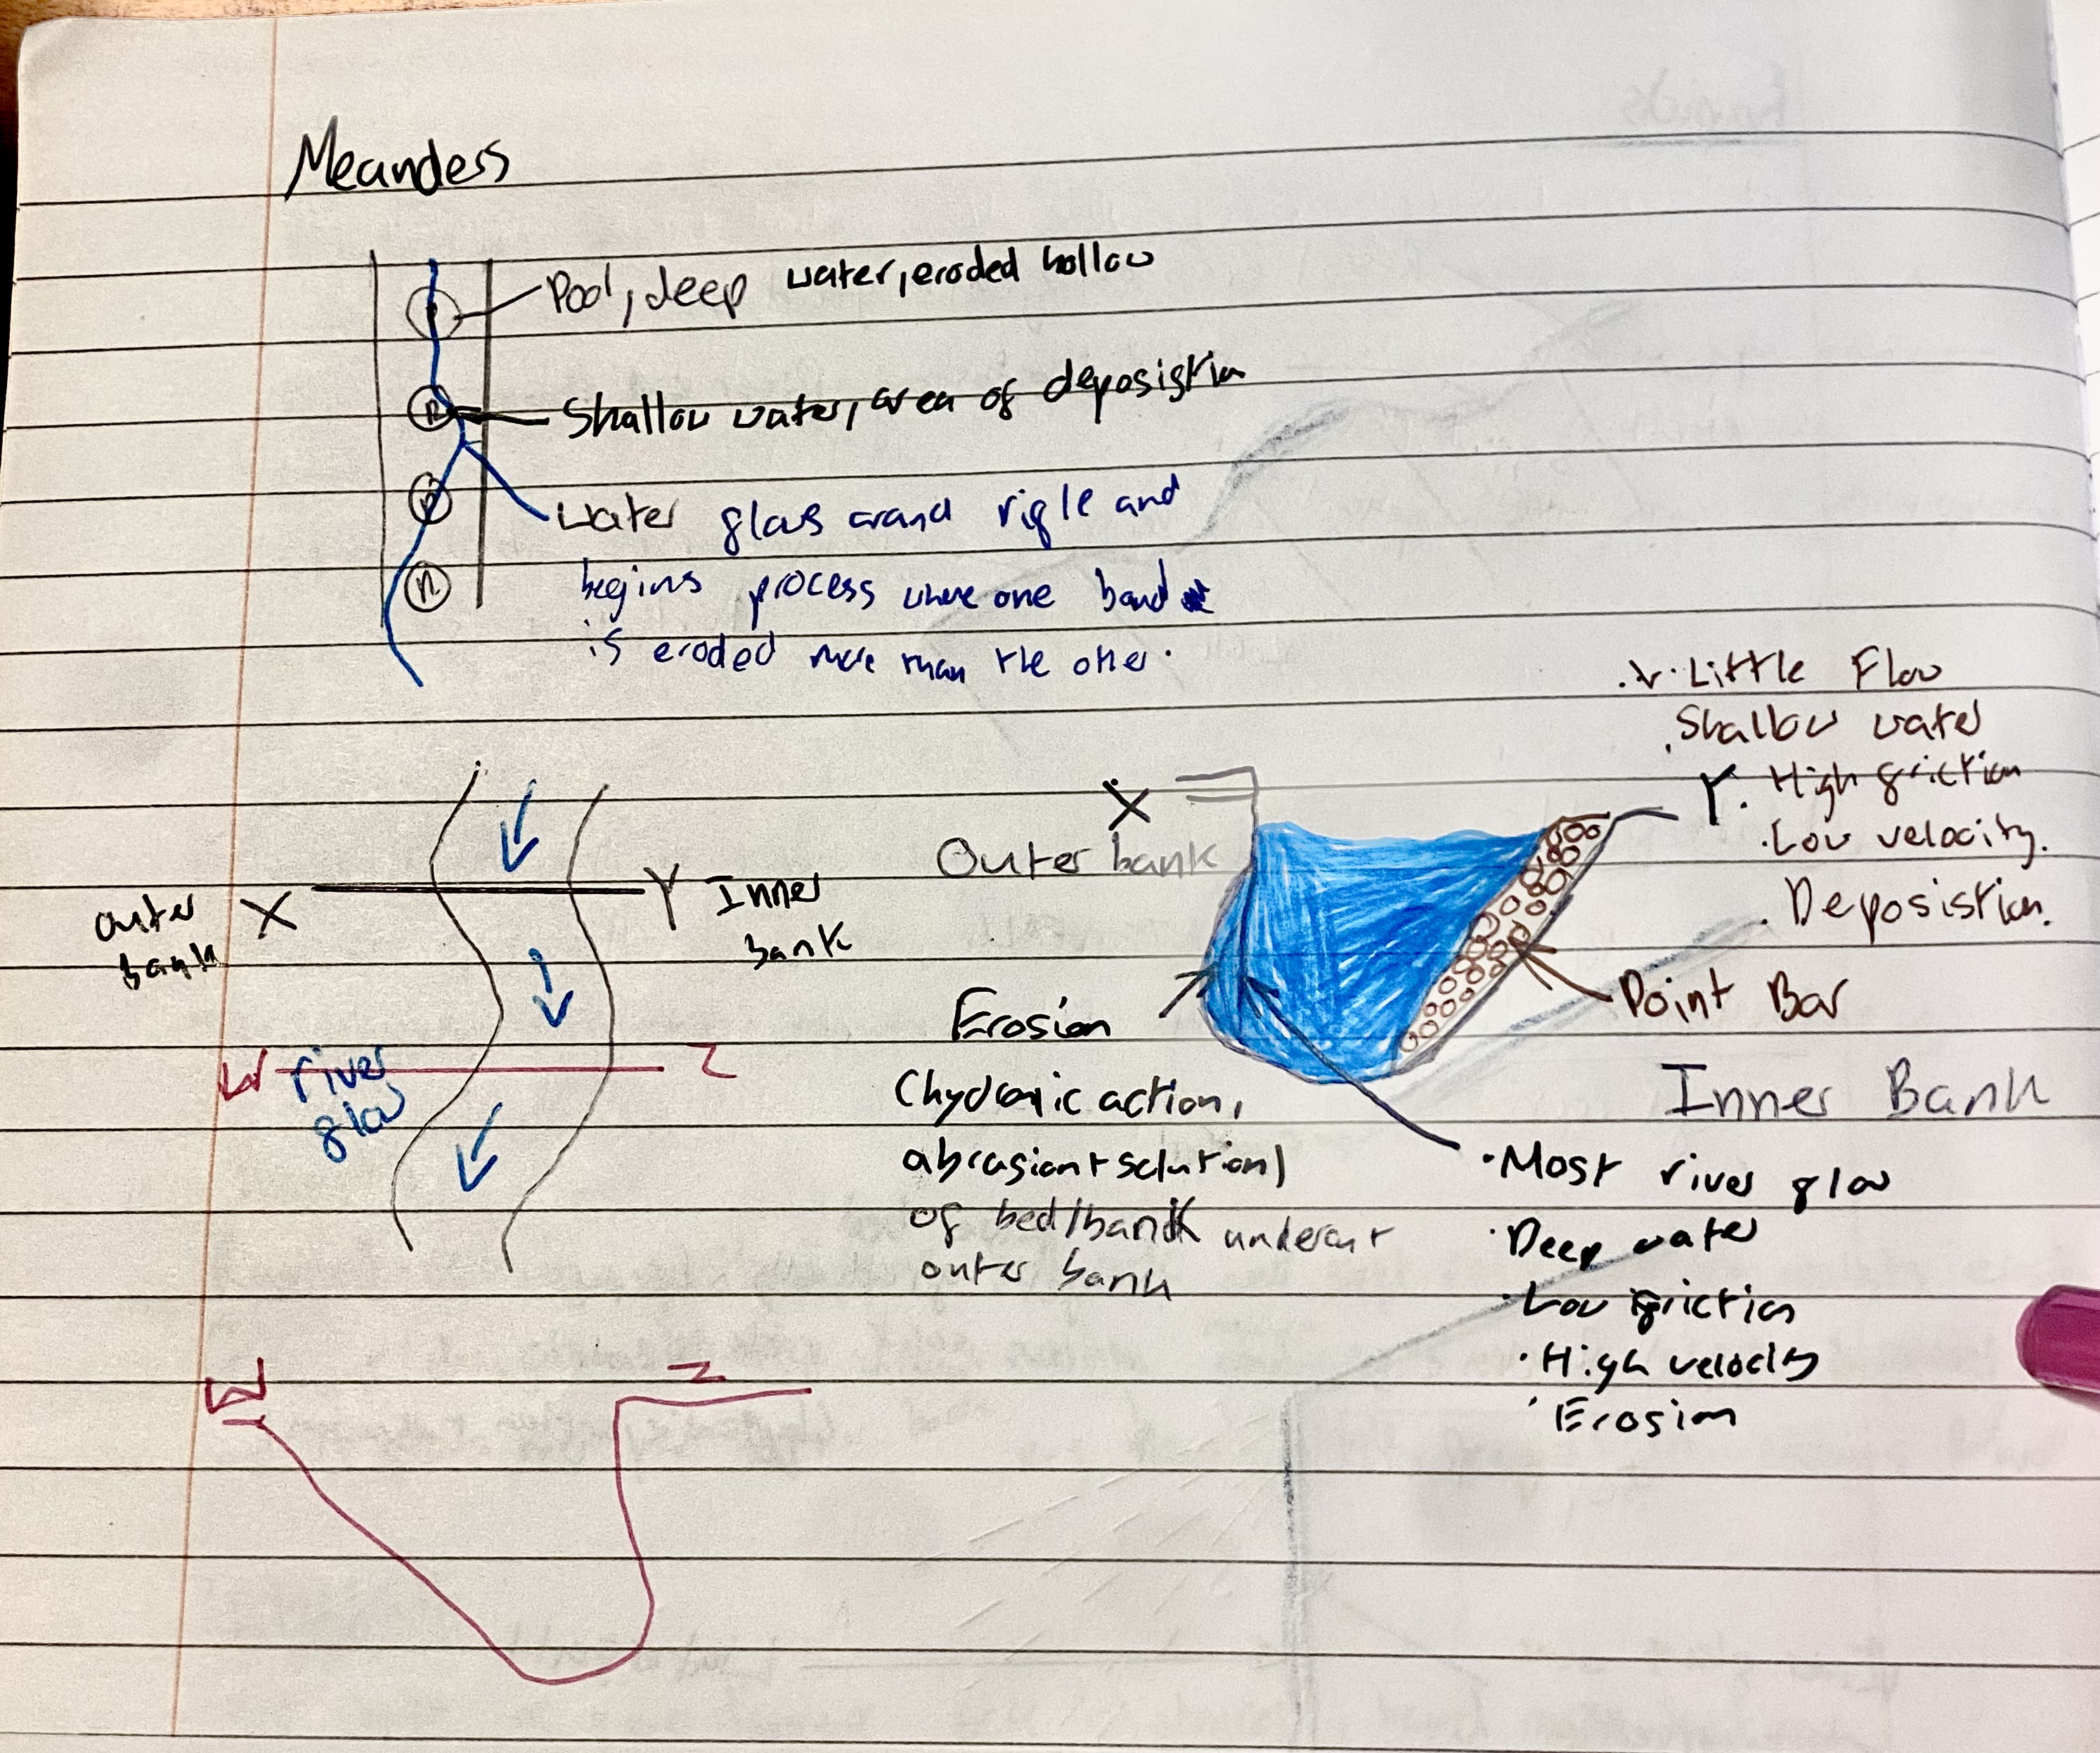 Meanders
Pool, deep water, eroded hollow
P
R
Shallow water, area of deposistion
P
Water flows around rifle and
R
begins process where one band
is eroded more than the other.
Little Flow
Shallow water
X
Y
High friction
Outer bank
Low velocity.
X
Y
Inner
bank
Outer
bank
Deposistion.
Point Bar
Erosion
W
river
flow
Z
Inner Bank
(hydraulic action,
abrasion + solution)
of bed/bank undercut
outer bank
Most river flow
Deep water
Low friction
High velocity
Erosion
W
Z